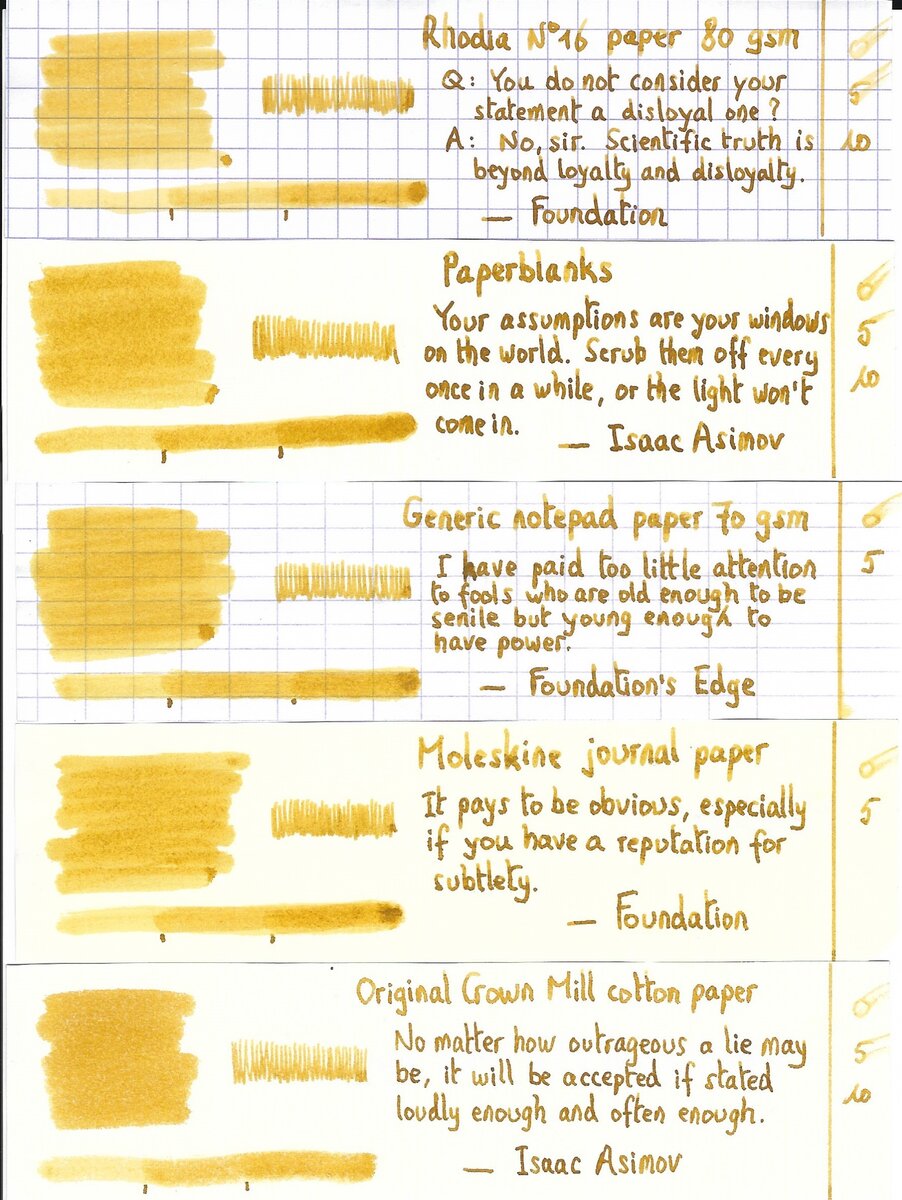 Rhodia N°16 paper 80 gsm
Q: You do not consider your
statement a disloyal one?
A: No, sir. Scientific truth is
beyond loyalty and disloyalty.
— Foundation
0
5
10
Paperblanks
Your assumptions are your windows
on the world. Scrub them off every
once in a while, or the light won't
come in.
— Isaac Asimov
0
5
10
Generic notepad paper 70 gsm
I have paid too little attention
to fools who are old enough to be
senile but young enough to
have power.
— Foundation's Edge
0
5
Moleskine journal paper
It pays to be obvious, especially
if you have a reputation for
subtlety.
— Foundation
0
5
Original Crown Mill cotton paper
No matter how outrageous a lie may
be, it will be accepted if stated
loudly enough and often enough.
— Isaac Asimov
0
5
10